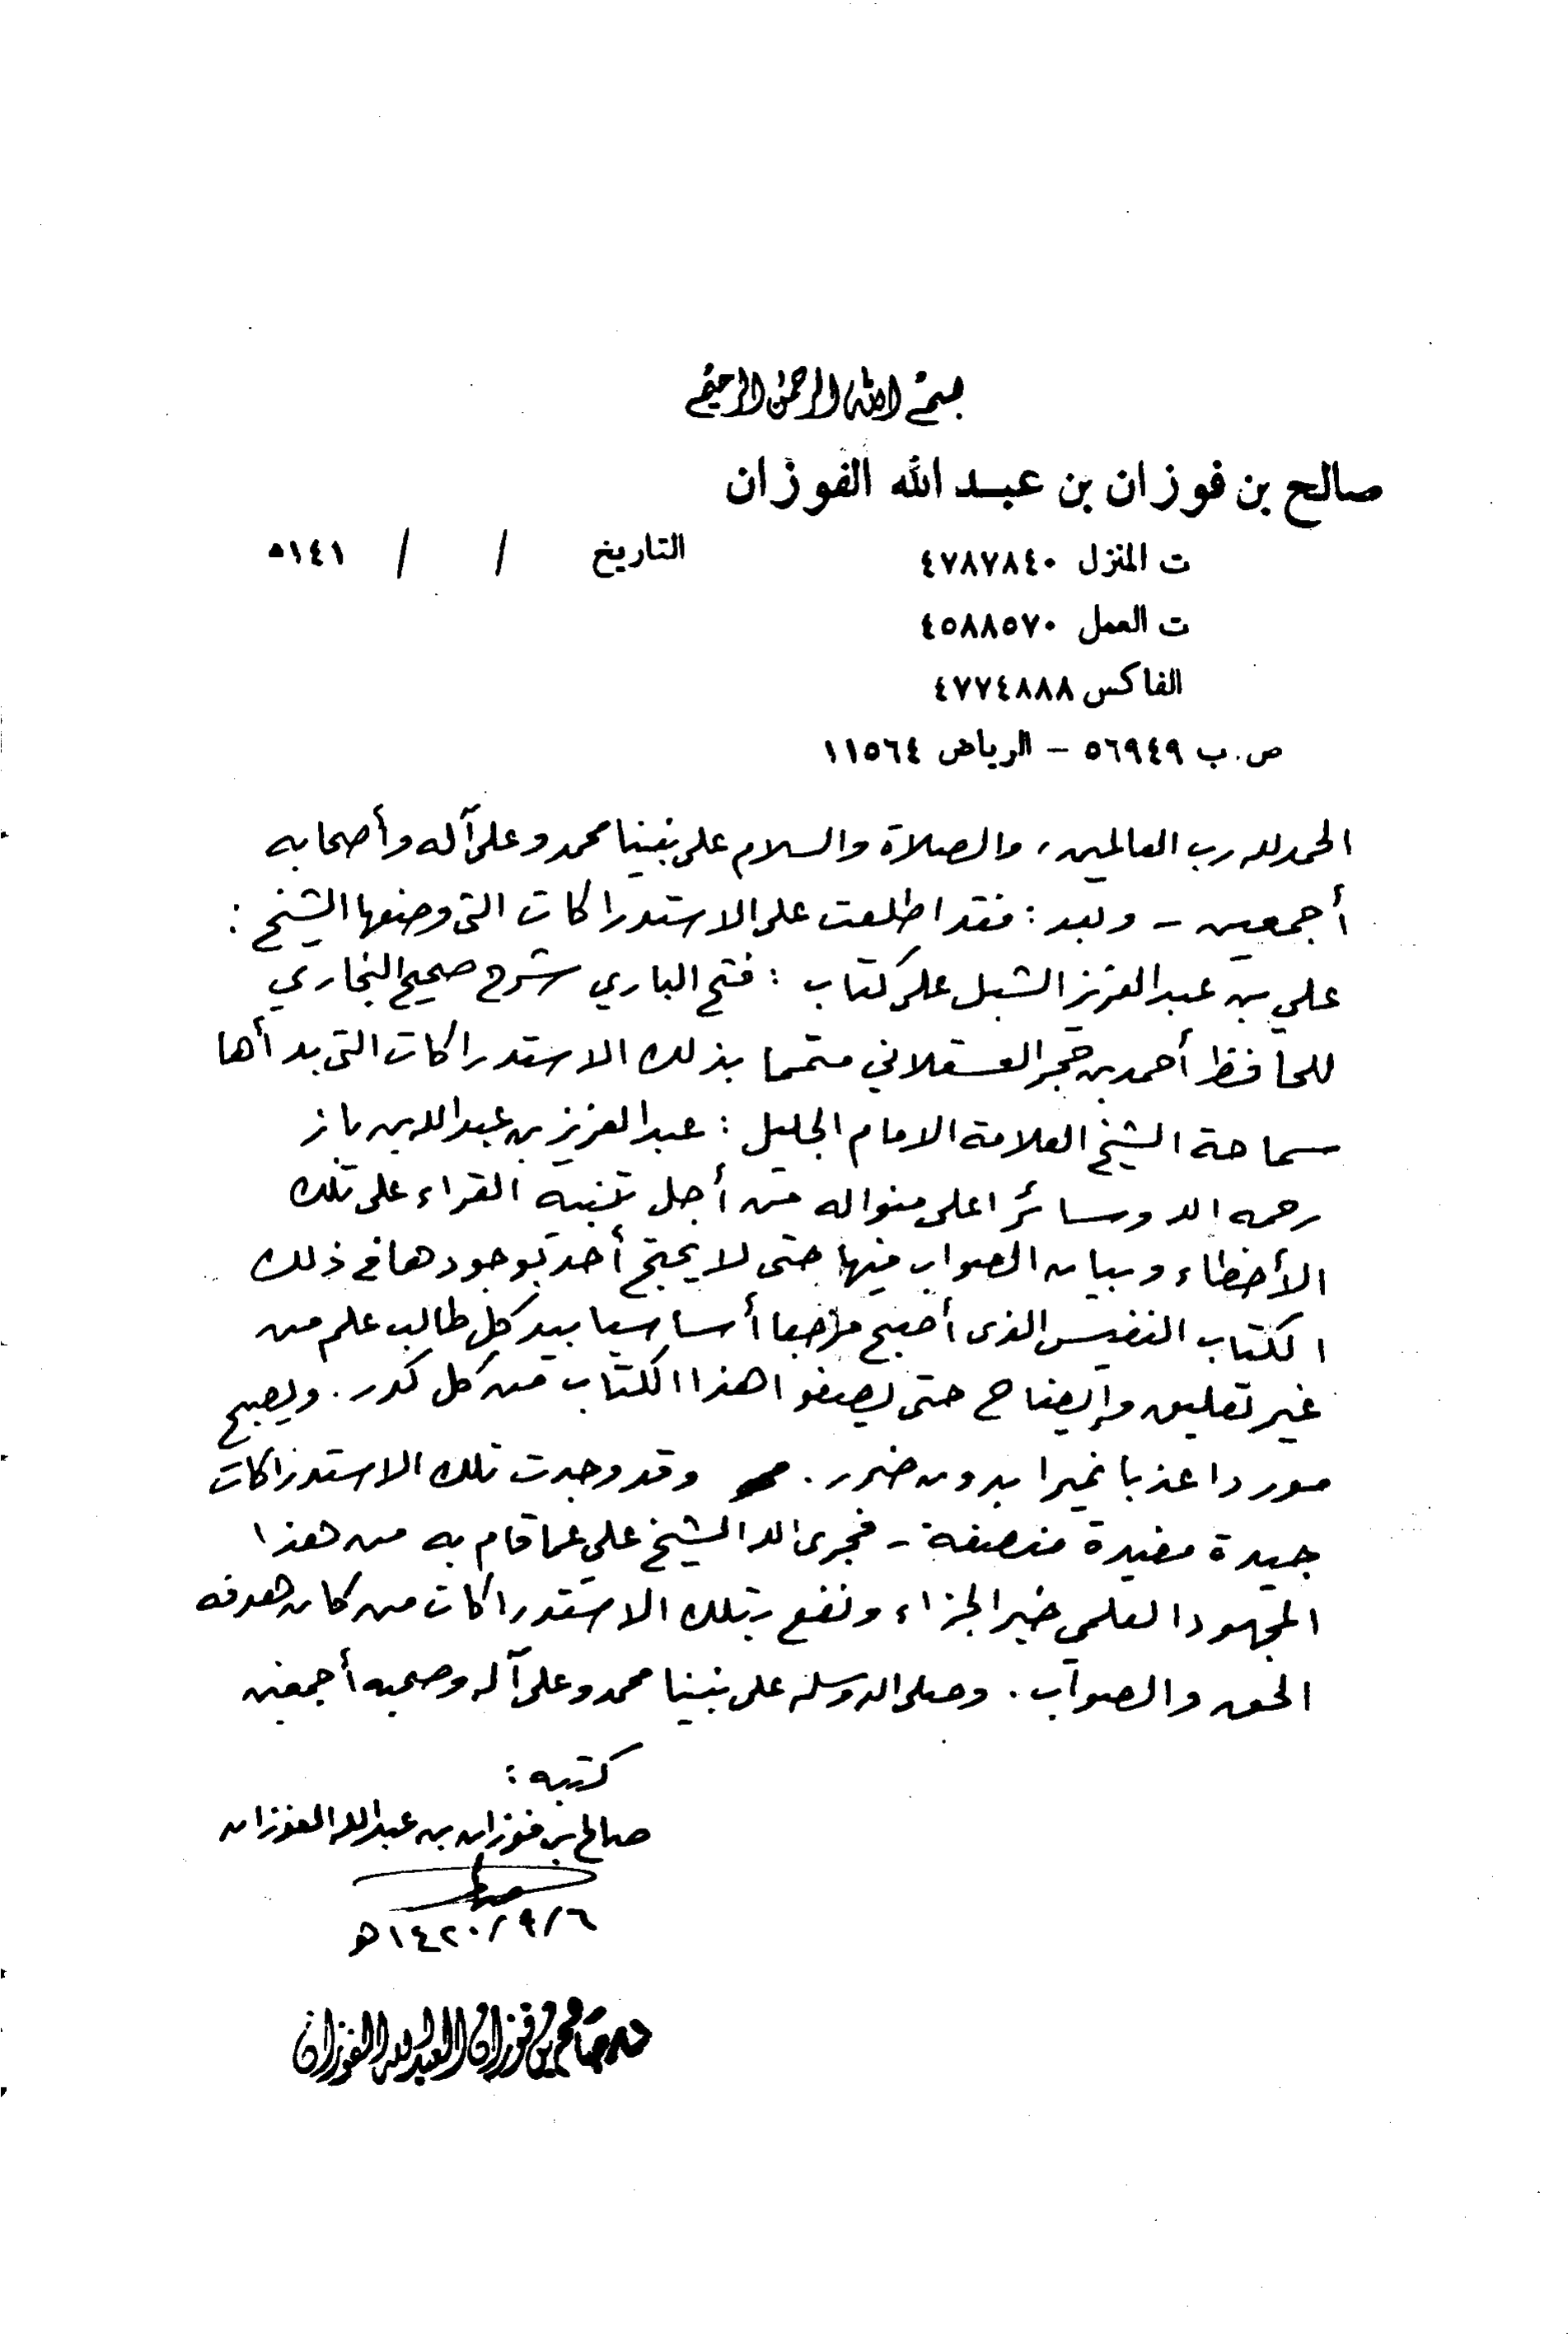 بسم الله الرحمن الرحيم
صالح بن فوزان بن عبد الله الفوزان
ت المنزل ٤٧٨٧٨٤٠
التاريخ / / ١٤١هـ
ت العمل ٤٥٨٨٥٧٠
الفاكس ٤٧٧٤٨٨٨
ص.ب ٥٦٩٤٩ – الرياض ١١٥٦٤
الحمد لله رب العالمين، والصلاة والسلام على نبينا محمد وعلى آله وأصحابه
أجمعين – وبعد : فقد اطلعت على الاستدراكات التى وضعها الشيخ :
علي بن عبد العزيز الشبل على كتاب : فتح الباري شرح صحيح البخاري
للحافظ أحمد بن حجر العسقلاني متمما بذلك الاستدراكات التى بدأها
سماحة الشيخ العلامة الامام الجليل : عبد العزيز بن عبد الله بن باز
رحمه الله وسائرا على منواله من أجل تنبيه القراء على تلك
الأخطاء وبيان الصواب فيها حتى لا يحتج أحد بوجودها في ذلك
الكتاب النفيس الذى أصبح مرجعا أساسيا بيد كل طالب علم من
غير تعليق وإيضاح حتى يصفوا هذا الكتاب من كل كدر. ويصبح
موردا عذبا نميرا بدون ضرر. وقد وجدت تلك الاستدراكات
جيدة مفيدة منصفة – فجزى الله الشيخ علي عما قام به من هذا
المجهود العلمي خير الجزاء ونفع بتلك الاستدراكات من كان هدفه
الحق والصواب. وصلى الله وسلم على نبينا محمد وعلى آله وصحبه أجمعين
كتبه :
صالح بن فوزان بن عبد الله الفوزان
٦/٩/١٤٢٠هـ
صالح بن فوزان العبد الله الفوزان